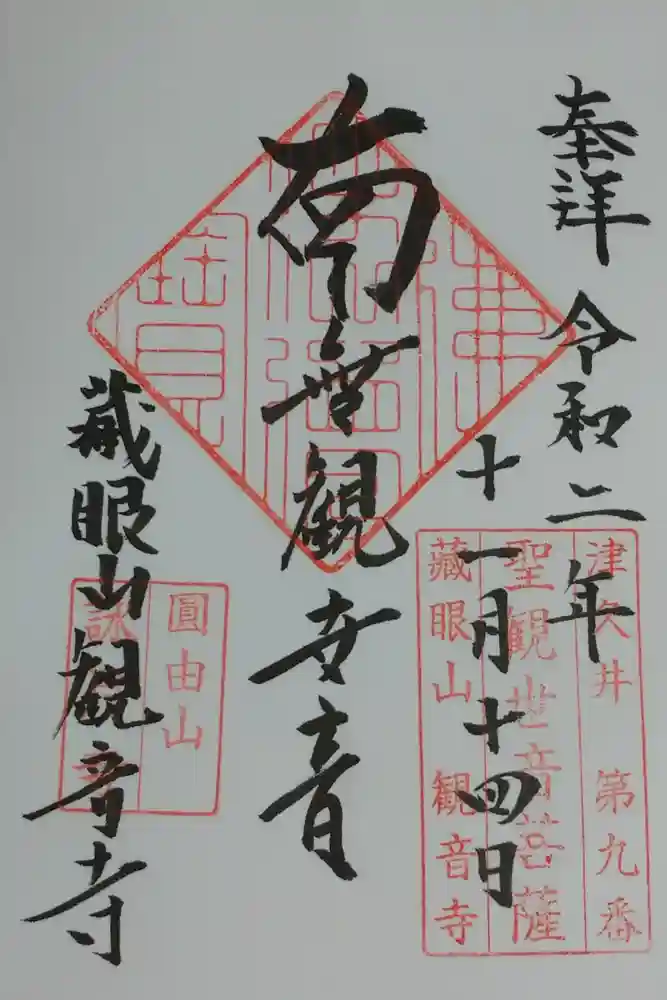 奉拝
令和二年
十一月十四日
南無観世音
蔵眼山観音寺
津久井 第九番
聖観世音菩薩
蔵眼山 観音寺
圓由山